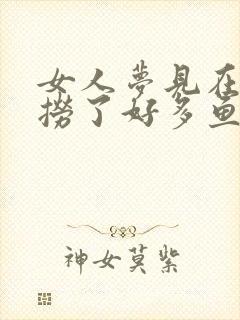 女人夢見在
撈了好多魚
神女莫紫